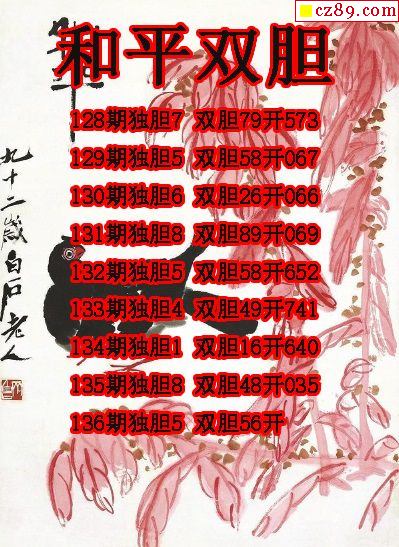 cz89.com
和平双胆
128期独胆7 双胆79开573
129期独胆5 双胆58开067
130期独胆6 双胆26开066
131期独胆8 双胆89开069
132期独胆5 双胆58开652
133期独胆4 双胆49开741
134期独胆1 双胆16开640
135期独胆8 双胆48开035
136期独胆5 双胆56开
九十二岁白石老人